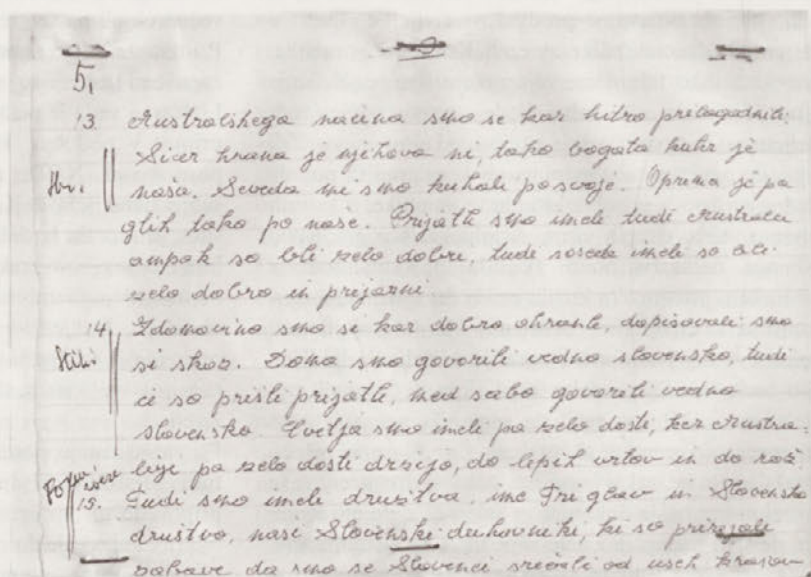 5,
13. Australskega načina smo se kar hitro prilagodili.
Sicer hrana je njihova ni, tako bogata kuhr je
naša. Seveda mi smo kuhali posvoje. Oprema je pa
glih tako po naše. Prijatle smo imele tudi Australce
ampak so bli zelo dobri, tude sosede imeli so bli
zelo dobro in prijazni
14. Zdomovino smo se kar dobro ohranle, dopisovali smo
si skoz. Doma smo govorili vedno slovensko, tudi
ci so prišli prijatle, med sabo govorili vedno
slovensko. Cvetja smo imeli pa zelo dosti, ker Austra-
lije pa zelo dosti držijo, do lepih vrtov in do rož
15. Tudi smo imeli društva, ime Triglav in Slovensko
društvo, nasi Slovenski duhovniki, ki so prirejali
zabave da smo se Slovenci srečali od useh krajov